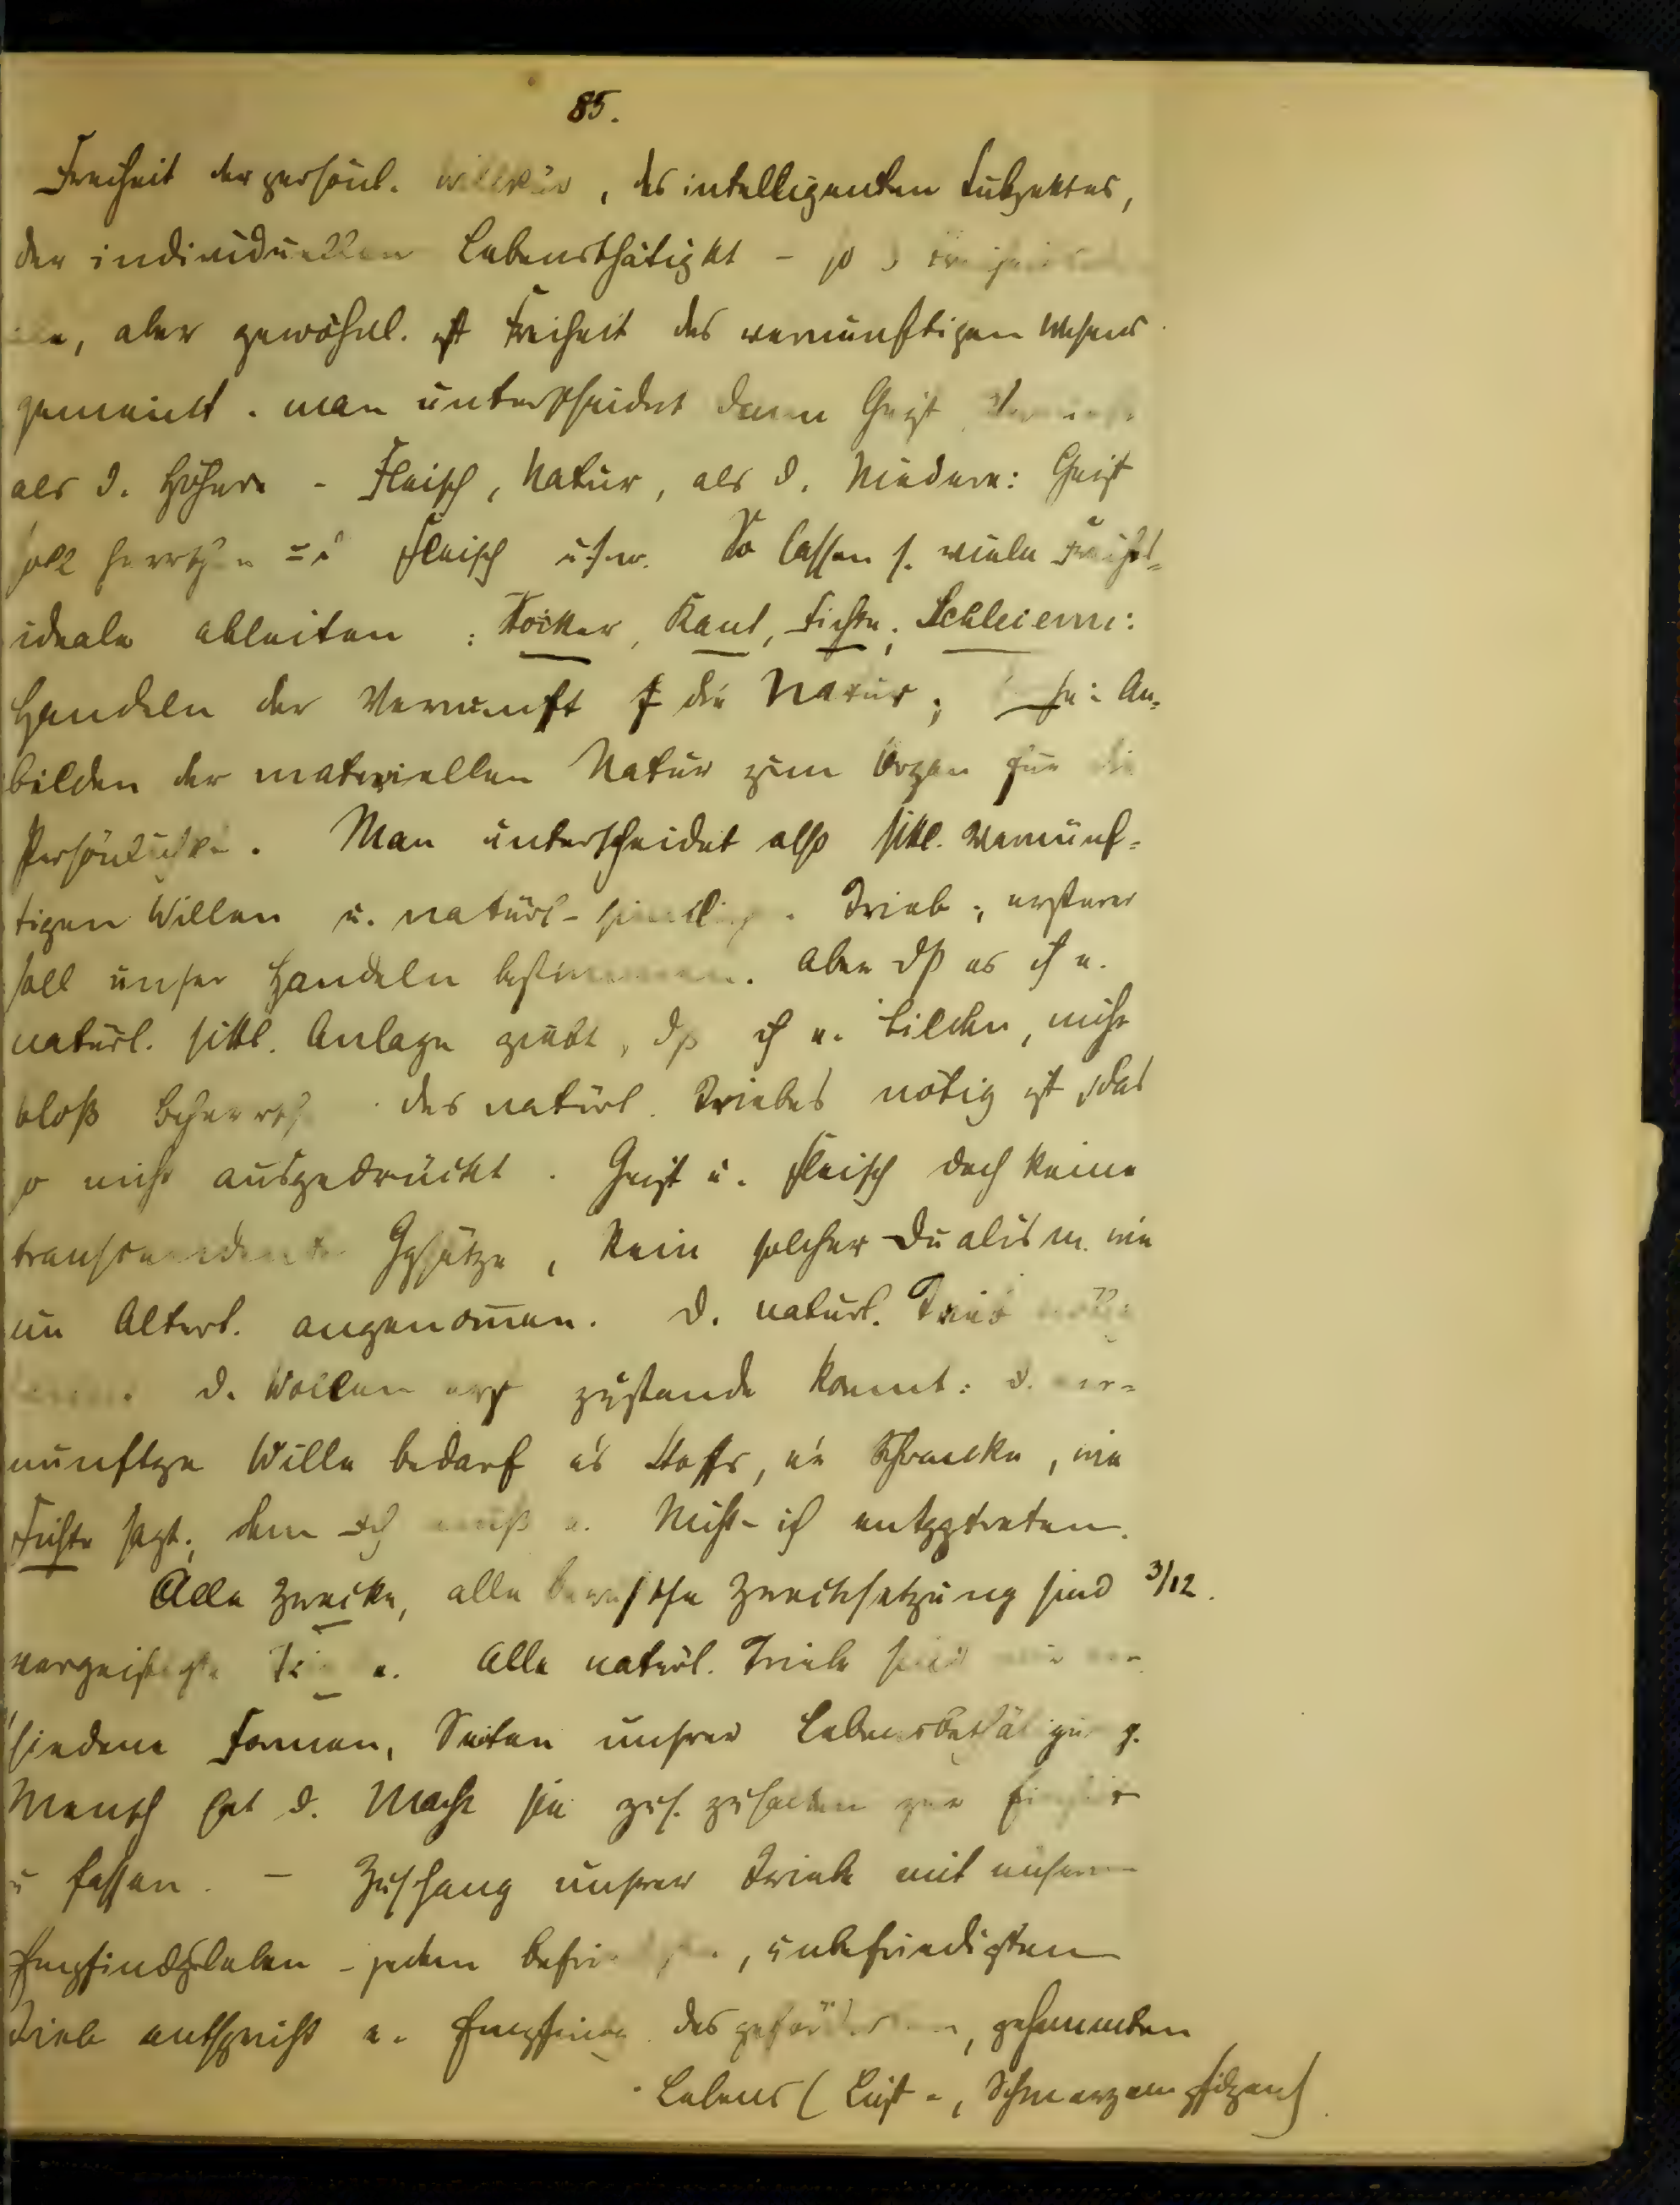 85.
Freiheit der persönl. Willkür, des intelligenten Subjektes,
der individuellen Lebensthätigkt – so
aber gewöhnl. ist Freiheit des vernünftigen Wesens
gemeint. man unterscheidet dann Geist
als d. Höhere – Fleisch, Natur, als d. Niedere: Geist
soll Fleisch usw. So lassen s. viele
ideale ableiten: Stoiker, Kant, Fichte; Schleierm:
Handeln der Vernunft f die Natur; An-
bilden der materiellen Natur zum Organ für die
Man unterscheidet also sittl. vernünf-
tigen Willen u. natürl- Trieb; ersterer
soll unser Handeln bestimmen. Aber dß es ch e.
natürl. sittl. Anlage giebt, dß ch e. Bilden, nicht
bloß des natürl. Triebes nötig ist, das
so nicht ausgedrückt. Geist u. Fleisch doch keine
Ggsätze, kein solcher Dualism. wie
im Altert. angenommen. D. natürl. Trieb
d. Wollen erst zustande kommt: d. ver-
nünftge Wille bedarf es Stoffs, er Schranke, wie
Fichte sagt; dem Ich muß e. Nicht-ich entggtreten.
Alle Zwecke, alle bewußte Zwecksetzung sind 3/12.
vergeistigte Alle natürl. Triebe sind
schiedene Formen, Seiten unsrer Lebensbethätigung.
Mensch hat d. Macht sie zus. zuhalten zur Einheit
z fassen. – Zushang unsrer Triebe mit unserm
Empfindgsleben – jedem unbefriedigten
Trieb entspricht e. Empfindg des gehemmten
Lebens (Lust-, Schmerzempfidgen)